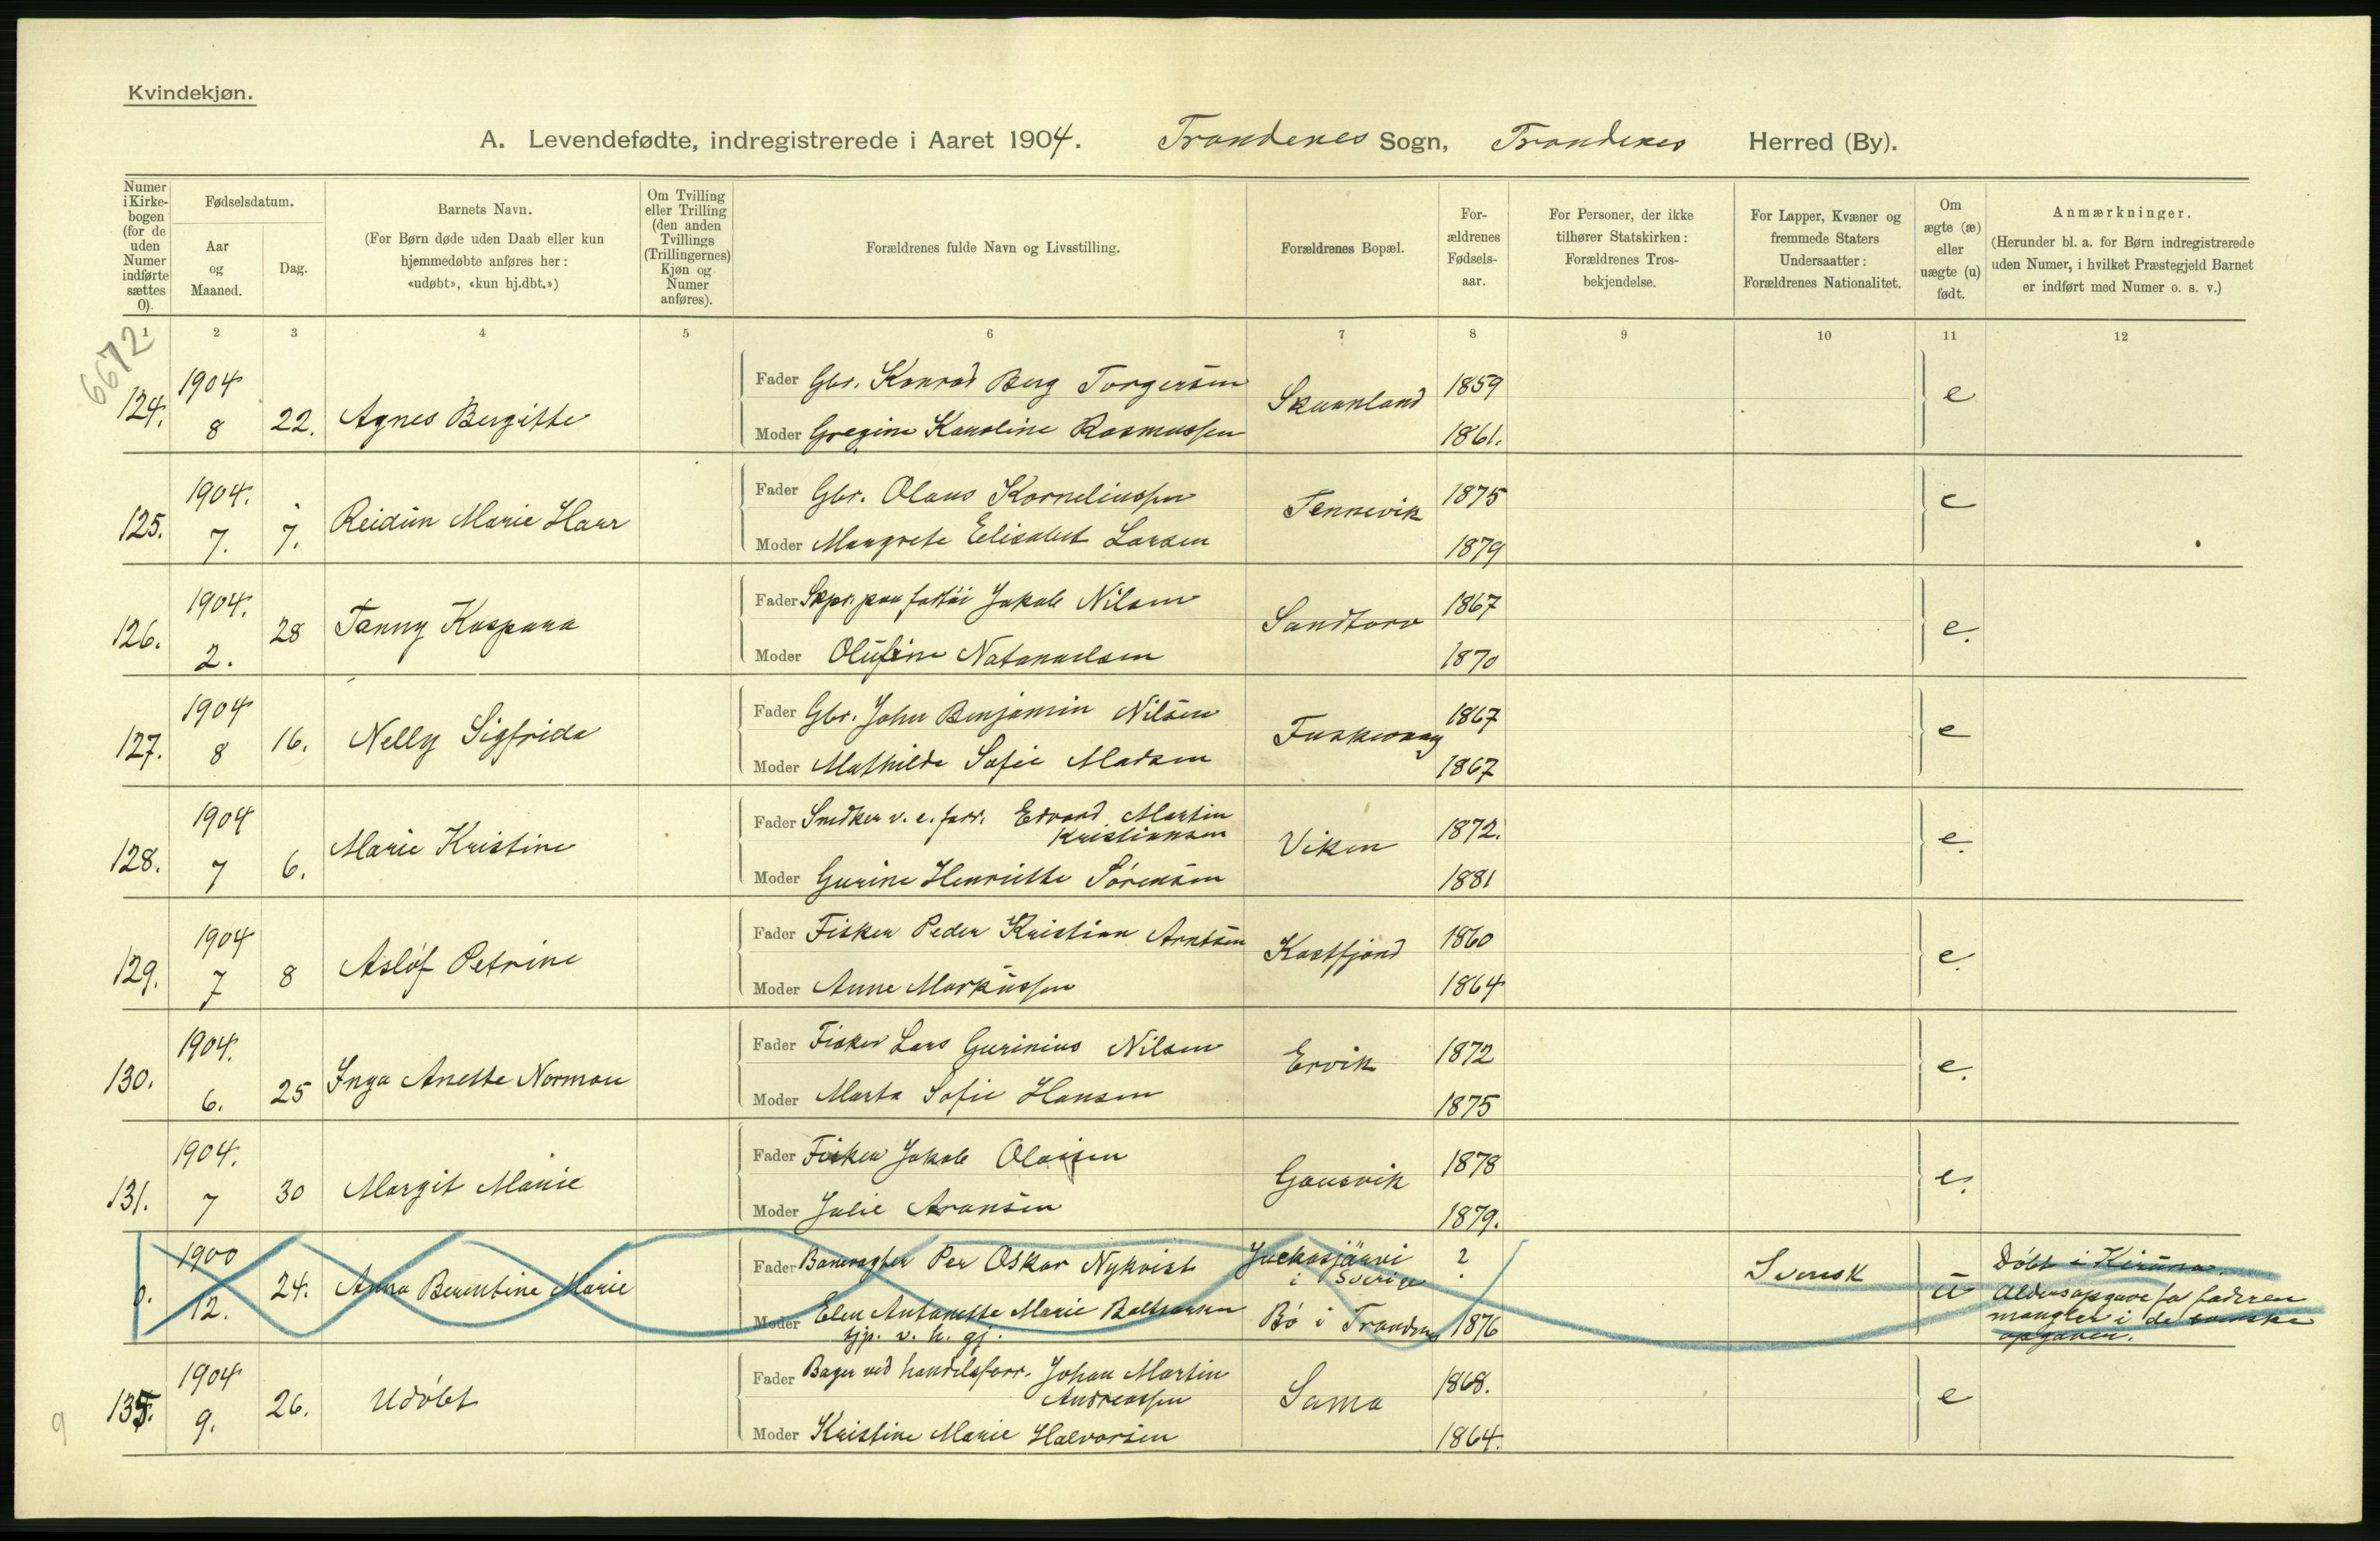 Kvindekjøn.
A. Levendefødte, indregistrerede i Aaret 1904. Trondenes Sogn, Trondenes Herred (By).
Numer i Kirkebogen (for de uden Numer indførte sættes 0).
Fødselsdatum.
Aar og Maaned.
Dag.
Barnets Navn.
(For Børn døde uden Daab eller kun hjemmedøbte anføres her: «udøbt», «kun hj.dbt.»)
Om Tvilling eller Trilling (den anden Tvillings (Trillingernes) Kjøn og Numer anføres).
Forældrenes fulde Navn og Livsstilling.
Forældrenes Bopæl.
Forældrenes Fødselsaar.
For Personer, der ikke tilhører Statskirken: Forældrenes Trosbekjendelse.
For Lapper, Kvæner og fremmede Staters Undersaatter: Forældrenes Nationalitet.
Om ægte (æ) eller uægte (u) født.
Anmærkninger.
(Herunder bl. a. for Børn indregistrerede uden Numer, i hvilket Præstegjeld Barnet er indført med Numer o. s. v.)
1 2 3 4 5 6 7 8 9 10 11 12
6672
124. 1904 8 22. Agnes Bergitte
Fader Gbr. Konrad Berg Torgersen Skaanland 1859 e
Moder Gregine Karoline Rasmussen 1861.
125. 1904. 7. 7. Reidun Marie Haar
Fader Gbr. Olaus Korneliussen Tennevik 1875 e
Moder Margrete Elisabet Larsen 1879
126. 1904. 2. 28 Fanny Kaspara
Fader Skpr. paa fartöi Jakob Nilsen Sandtorv 1867 e.
Moder Olufine Natanaelsen 1870
127. 1904 8 16. Nelly Sigfrida
Fader Gbr. John Benjamin Nilsen Fuskevaag 1867 e
Moder Mathilde Sofie Madsen 1867
128. 1904 7 6. Marie Kristine
Fader Snedker v. e. forr. Edvard Martin Kristiansen Viken 1872. e.
Moder Gurine Henriette Sörensen 1881
129. 1904 7 8 Aslóf Petrine
Fader Fisker Peder Kristian Arntsen Kastfjord 1860 e.
Moder Anne Markussen 1864
130. 1904. 6. 25 Inga Anette Norman
Fader Fisker Lars Gurinius Nilsen Ervik 1872 e.
Moder Marta Sofie Hansen 1875
131. 1904. 7 30 Margit Marie
Fader Fisker Jakob Olaisen Gausvik 1878 e.
Moder Julie Aronsen 1879.
0. 1900 12. 24. Anna Berentine Marie
Fader Banevagter Per Oskar Nykvist Juckasjärvi i Sverige ? Svensk u Döbt i Kiruna.
Moder Elen Antonette Marie Baltsersen tjp. v. h. gj. Bö i Trondenes 1876 Aldersopgave for faderen mangler i de svenske opgaver.
135. 1904 9. 26. Udöbt
Fader Bager ved handelsforr. Johan Martin Andreassen Sama 1868. e
Moder Kristine Marie Halvorsen 1864.
9